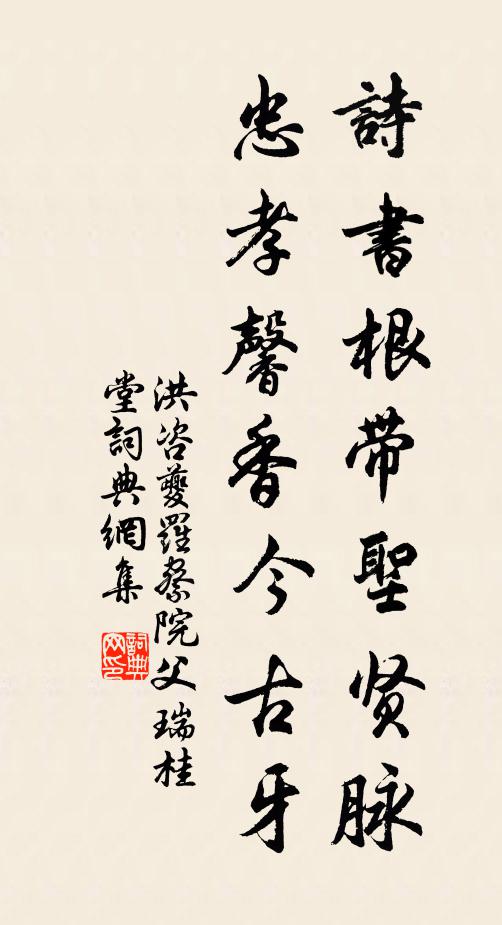 詩書根帶聖贤脉
忠孝馨香今古牙
洪咨夔羅察院父瑞桂
堂詞典網集
詞典
网印